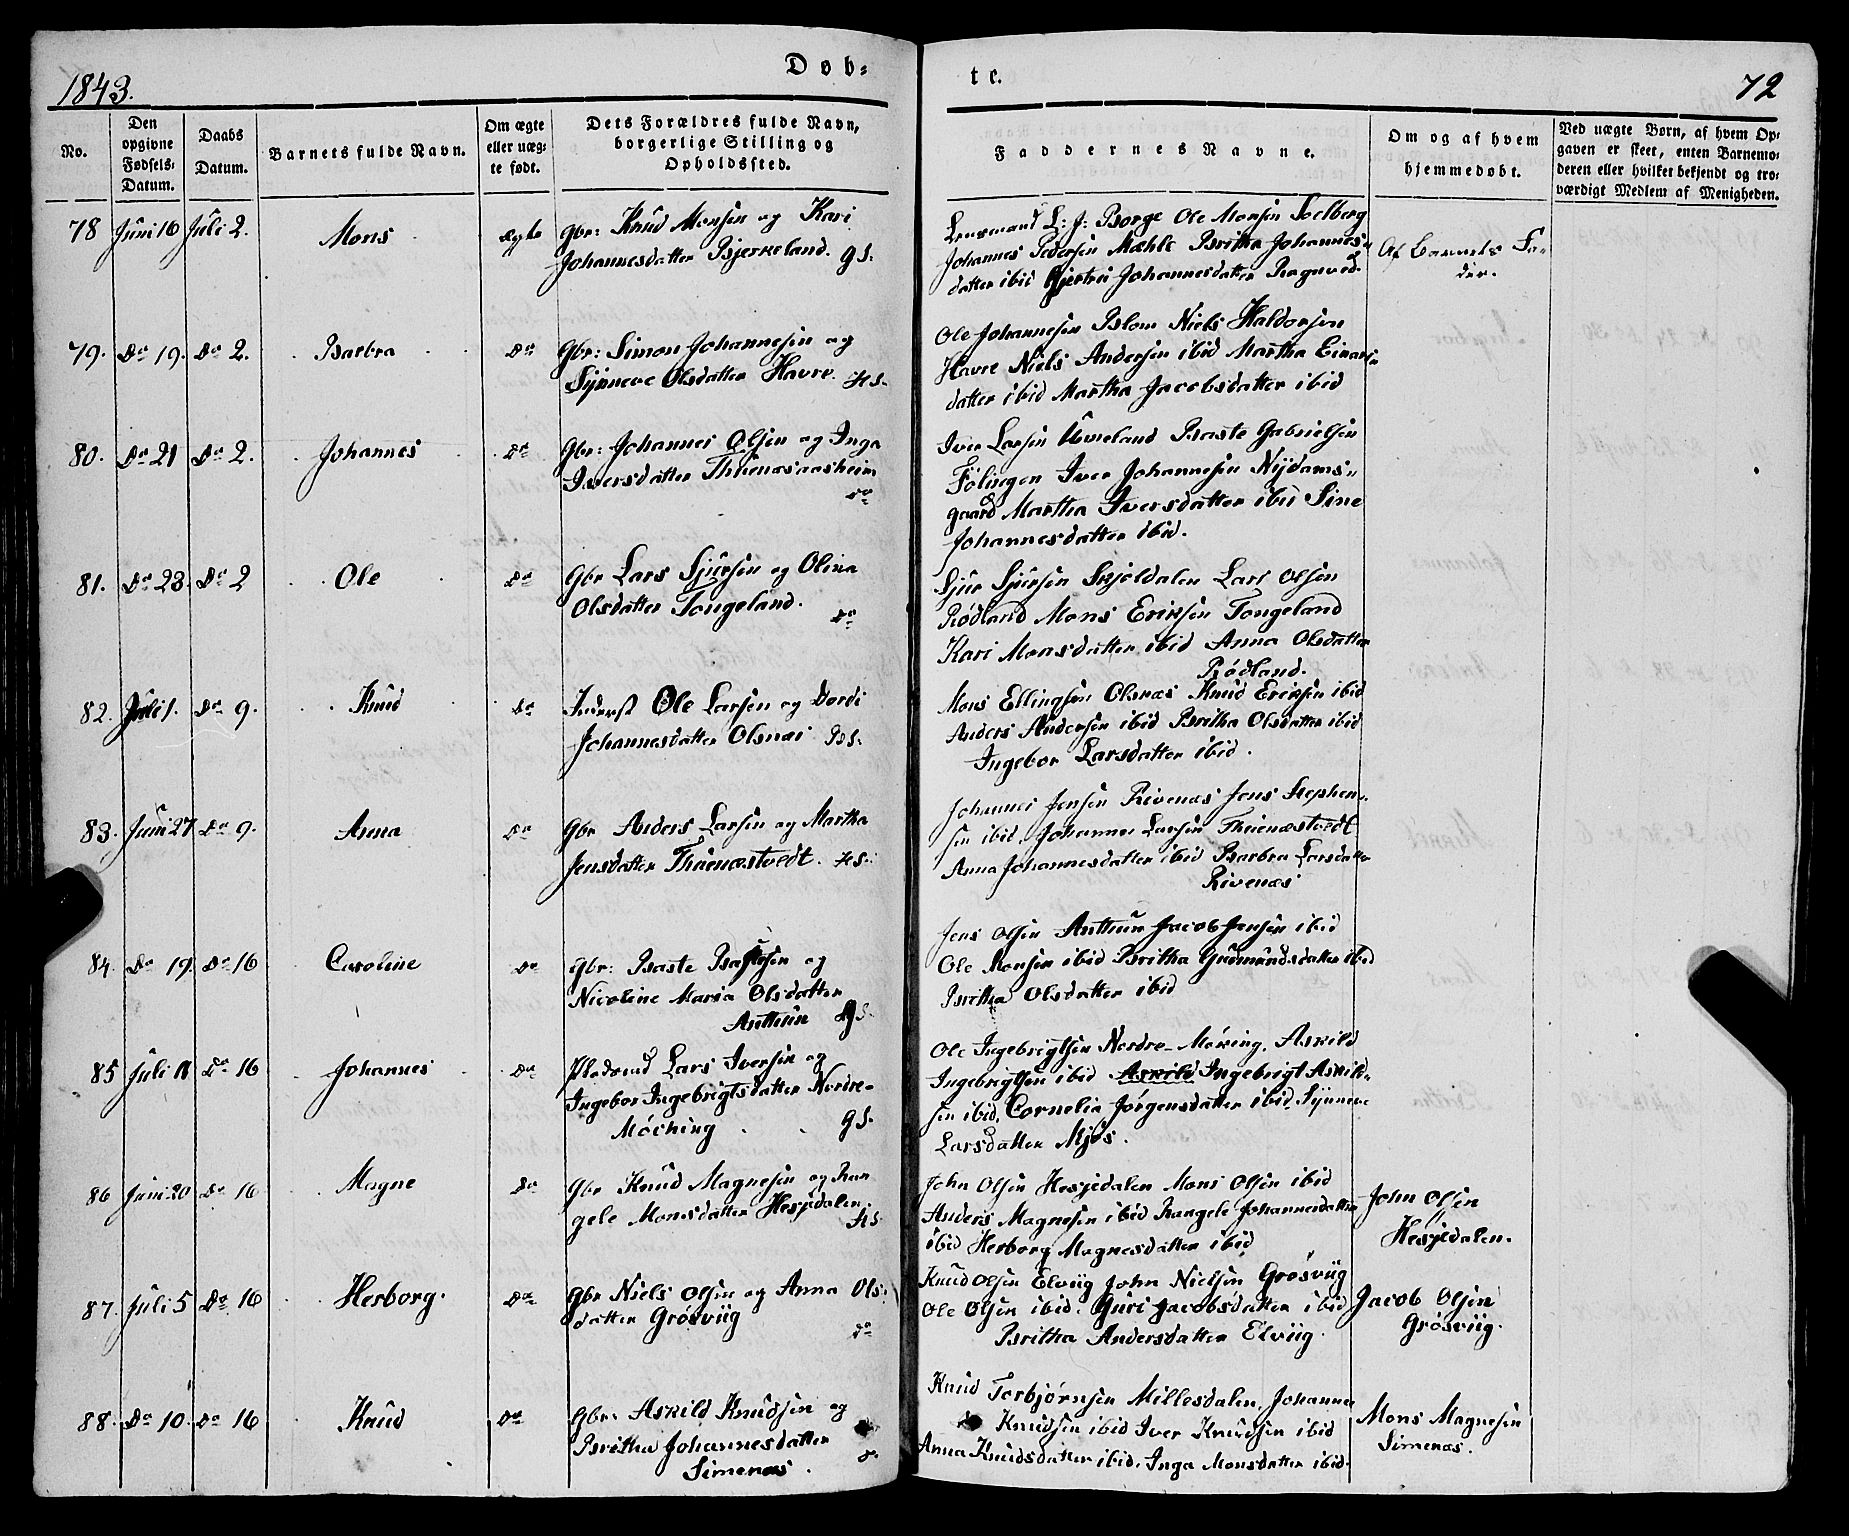 1843.
Døb-
te.
72
No.
Den opgivne Fødsels-Datum.
Daabs Datum.
Barnets fulde Navn.
Om ægte eller uæg-te født.
Dets Forældres fulde Navn, borgerlige Stilling og Opholdssted.
Faddernes Navne.
Om og af hvem hjemmedøbt.
Ved uægte Børn, af hvem Op-gaven er skeet, enten Barnemo-deren eller hvilket bekjendt og tro-værdigt Medlem af Menigheden.
78 Juni 16 Juli 2. Mons ægte Gbr: Knud Monsen og Kari
Johannesdatter Bjerkeland. GS.
Lensmand L: J: Borge Ole Monsen Soelberg
Johannes Pedersen Mæhle Britha Johannes-
datter ibid Gjertru Johannesdatter Ragnved.
Af Barnets Fa-
der.
79. Do 19. Do 2. Barbra Do Gbr: Simon Johannesen og
Synneve Olsdatter Havre. HS.
Ole Johannesen Blom Niels Haldorsen
Havre Niels Andersen ibid Martha Einars-
datter ibid Martha Jacobsdatter ibid
80. Do 21 Do 2. Johannes Do Gbr: Johannes Olsen og Inga
Iversdatter Thuenæsaasheim
Do
Iver Larsen Uneland Baste Gabrielsen
Fölingen Iver Johannesen Nydams-
gaard Martha Iversdatter ibid Sine
Johannesdatter ibid.
81. Do 23. Do 2 Ole Do Gbr Lars Sjursen og Olina
Olsdatter Tongeland. Do
Sjur Sjursen Skjoldalen Lars Olsen
Rödland Mons Eriksen Tongeland
Kari Monsdatter ibid Anna Olsdatter
Rödland.
82. Juli 1. Do 9. Knud Do Inderst Ole Larsen og Dordi
Johannesdatter Olsnæs BS.
Mons Ellingsen Olsnæs Knud Eriksen ibid
Anders Andersen ibid Britha Olsdatter ibid
Ingebor Larsdatter ibid.
83. Juni 27 Do 9. Anna Do Gbr Anders Larsen og Martha
Jensdatter Thuenæstvedt. HS.
Johannes Jensen Rivenæs Jens Stephen-
sen ibid, Johannes Larsen Thuenæstvedt
Anna Johannesdatter ibid Barbra Larsdatter
Rivenæs
84. Do 19. Do 16 Caroline Do Gbr: Baste Bastesen og
Nicoline Maria Olsdatter
Anthun GS.
Jens Olsen Anthun Jacob Jensen ibid
Ole Monsen ibid Britha Gudmundsdatter ibid
Britha Olsdatter ibid
85 Juli 11 Do 16 Johannes Do Pladsmd Lars Iversen og
Ingebor Ingebrigtsdatter Nordre-
Möching GS.
Ole Ingebrigtsen Nordre-Möking. Askild
Ingebrigtsen ibid Askild Ingebrigt Askild-
sen ibid, Cornelia Jörgensdatter ibid, Synneve
Larsdatter Mjøs.
86 Juni 20 Do 16 Magne Do Gbr Knud Magnesen og Ran
gele Monsdatter Hesjedalen.
HS.
John Olsen Hesjedalen Mons Olsen ibid
Anders Magnesen ibid Rangele Johannesdatter
ibid Herborg Magnesdatter ibid
John Olsen
Hesjedalen.
87. Juli 5 Do 16 Herborg. Do Gbr Niels Olsen og Anna Ols-
datter Grösviig
Do
Knud Olsen Elviig John Nielsen Grösviig
Ole Olsen ibid. Guri Jacobsdatter ibid
Britha Andersdatter Elviig.
Jacob Olsen
Grösviig.
88. Do 10. Do 16 Knud Do Gbr: Askild Knudsen og
Britha Johannesdatter
Simenæs.
Knud Torbjörnsen Millesdalen, Johanne
Knudsen ibid Iver Knudsen ibid
Anna Knudsdatter ibid, Inga Monsdatter ibid.
Mons Magnesen
Simenæs.